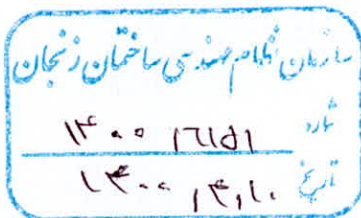 سازمان نظام مهندسی ساختمان زنجان
شماره ۱۴۰۰
تاریخ ۱۴۰۰/۴/۱۰